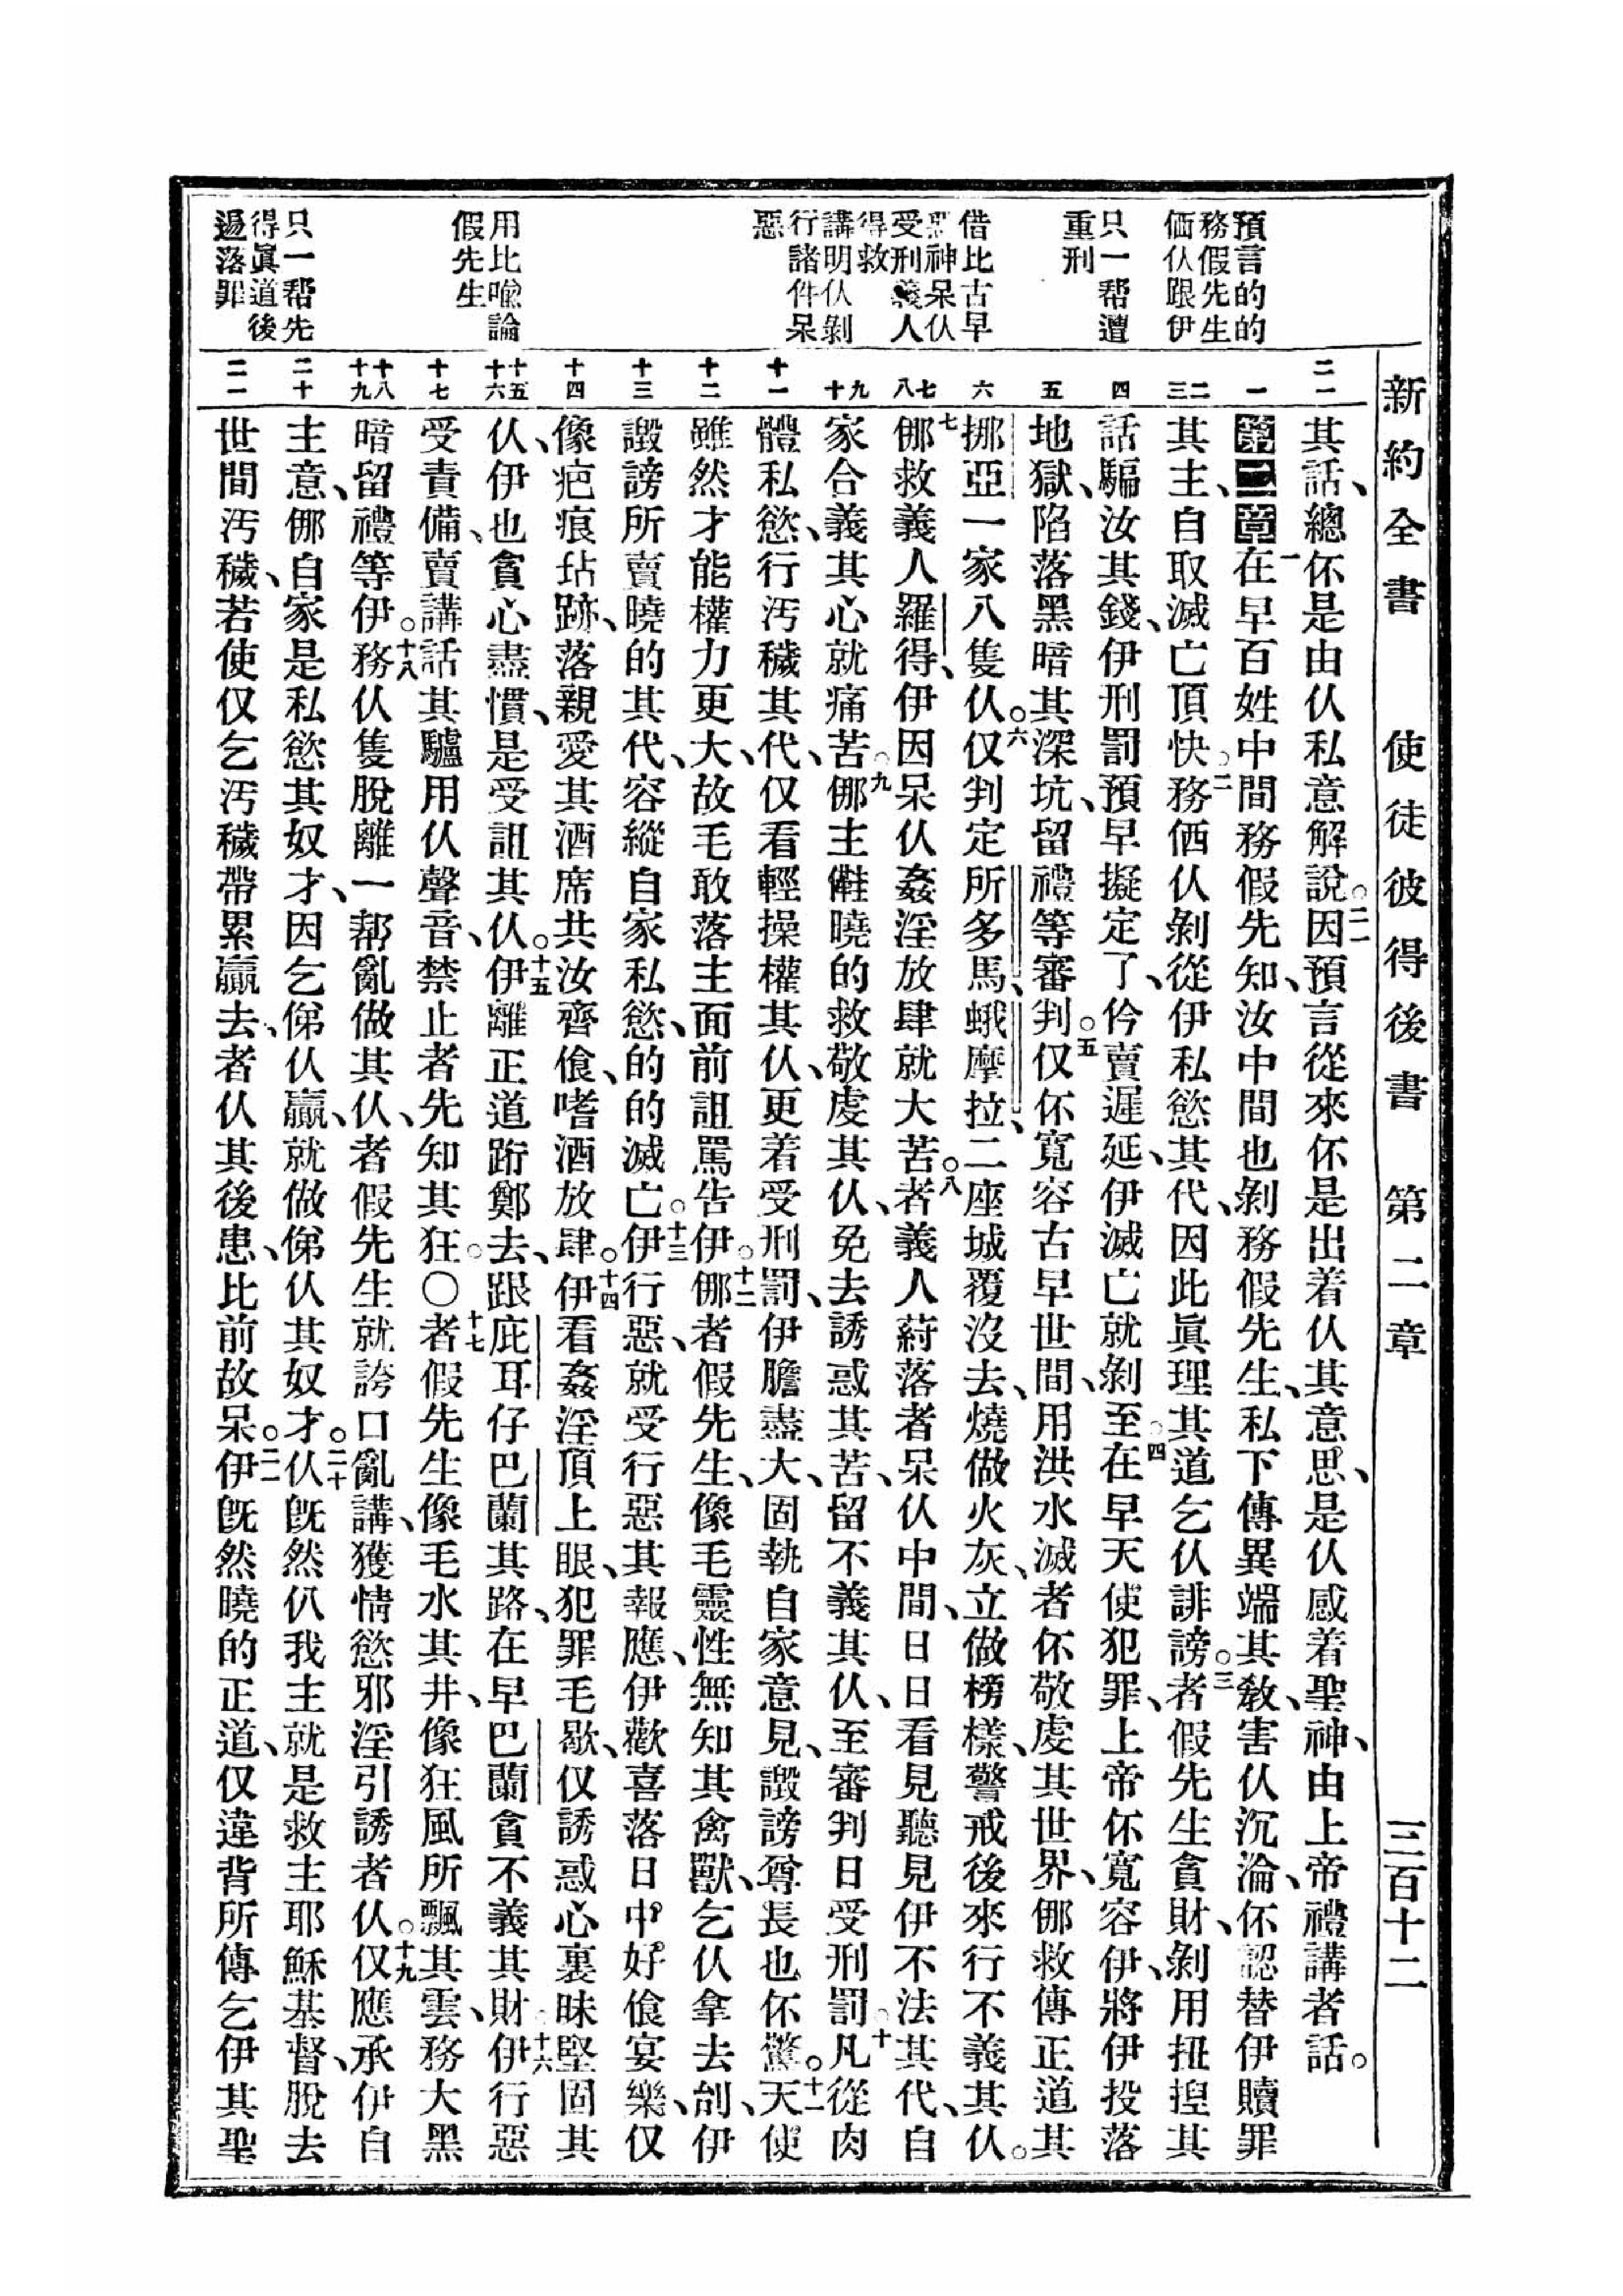 新約全書　使徒彼得後書　第二章　三百十二
預言的的
務假先生
価仈跟伊
只一帮遭
重刑
借比古早
惡神呆仈
受刑義人
得救
講明仈剝
行諸件呆
惡
用比喩論
假先生
只一帮先
得眞道後
逿落罪
二一
一
二三
四
五
六
七八
九十
十一
十二
十三
十四
十五十六
十七
十八十九
二十
二一
其話、總伓是由仈私意解說。二一因預言從來伓是出着仈其意思、是仈感着聖神、由上帝禮講者話。
第二章一在早百姓中間務假先知、汝中間也剝務假先生、私下傳異端其敎、害仈沉淪、伓認替伊贖罪
其主、自取滅亡頂快。二務価仈剝從伊私慾其代、因此眞理其道乞仈誹謗。三者假先生貪財、剝用扭揑其
話騙汝其錢、伊刑罰預早擬定了、仱賣遲延、伊滅亡就剝至。四在早天使犯罪、上帝伓寬容伊、將伊投落
地獄、陷落黑暗其深坑、留禮等審判。五仅伓寬容古早世間、用洪水滅者伓敬虔其世界、𨚫救傳正道其
挪亞一家八隻仈。六仅判定所多馬、蛾摩拉、二座城覆沒去、燒做火灰、立做榜樣、警戒後來行不義其仈。
七𨚫救義人羅得、伊因呆仈姦淫放肆就大苦。八者義人蒔落者呆仈中間、日日看見聽見伊不法其代、自
家合義其心就痛苦。九𨚫主𠋡曉的救敬虔其仈、免去誘惑其苦、留不義其仈、至審判日受刑罰。十凡從肉
體私慾、行汚穢其代、仅看輕操權其仈、更着受刑罰、伊膽盡大、固執自家意見、譭謗尊長也伓驚。十一天使
雖然才能權力更大、故毛敢落主面前詛罵告伊。十二𨚫者假先生、像毛靈性無知其禽獸、乞仈拿去刣、伊
譭謗所賣曉的其代、容縱自家私慾、的的滅亡。十三伊行惡、就受行惡其報應、伊歡喜落日中好飡宴樂、仅
像疤痕玷跡、落親愛其酒席共汝齊飡、嗜酒放肆。十四伊看姦淫頂上眼、犯罪毛歇、仅誘惑心裏昧堅固其
仈、伊也貪心盡慣、是受詛其仈。十五伊離正道跨鄭去、跟庇耳仔巴蘭其路、在早巴蘭貪不義其財。十六伊行惡
受責備、賣講話其驢用仈聲音、禁止者先知其狂。〇十七者假先生像毛水其井、像狂風所飄其雲、務大黑
暗留禮等伊。十八務仈隻脫離一帮亂做其仈、者假先生就誇口亂講、獲情慾邪淫引誘者仈。十九仅應承伊自
主意、𨚫自家是私慾其奴才、因乞俤仈贏、就做俤仈其奴才。二十仈旣然仈我主就是救主耶穌基督、脫去
世間汚穢、若使仅乞汚穢帶累贏去、者仈其後患、比前故呆。二一伊旣然曉的正道、仅違背所傳乞伊其聖